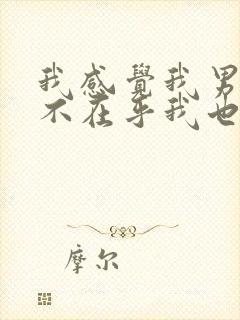 我感覺我男
不在乎我也
摩尔